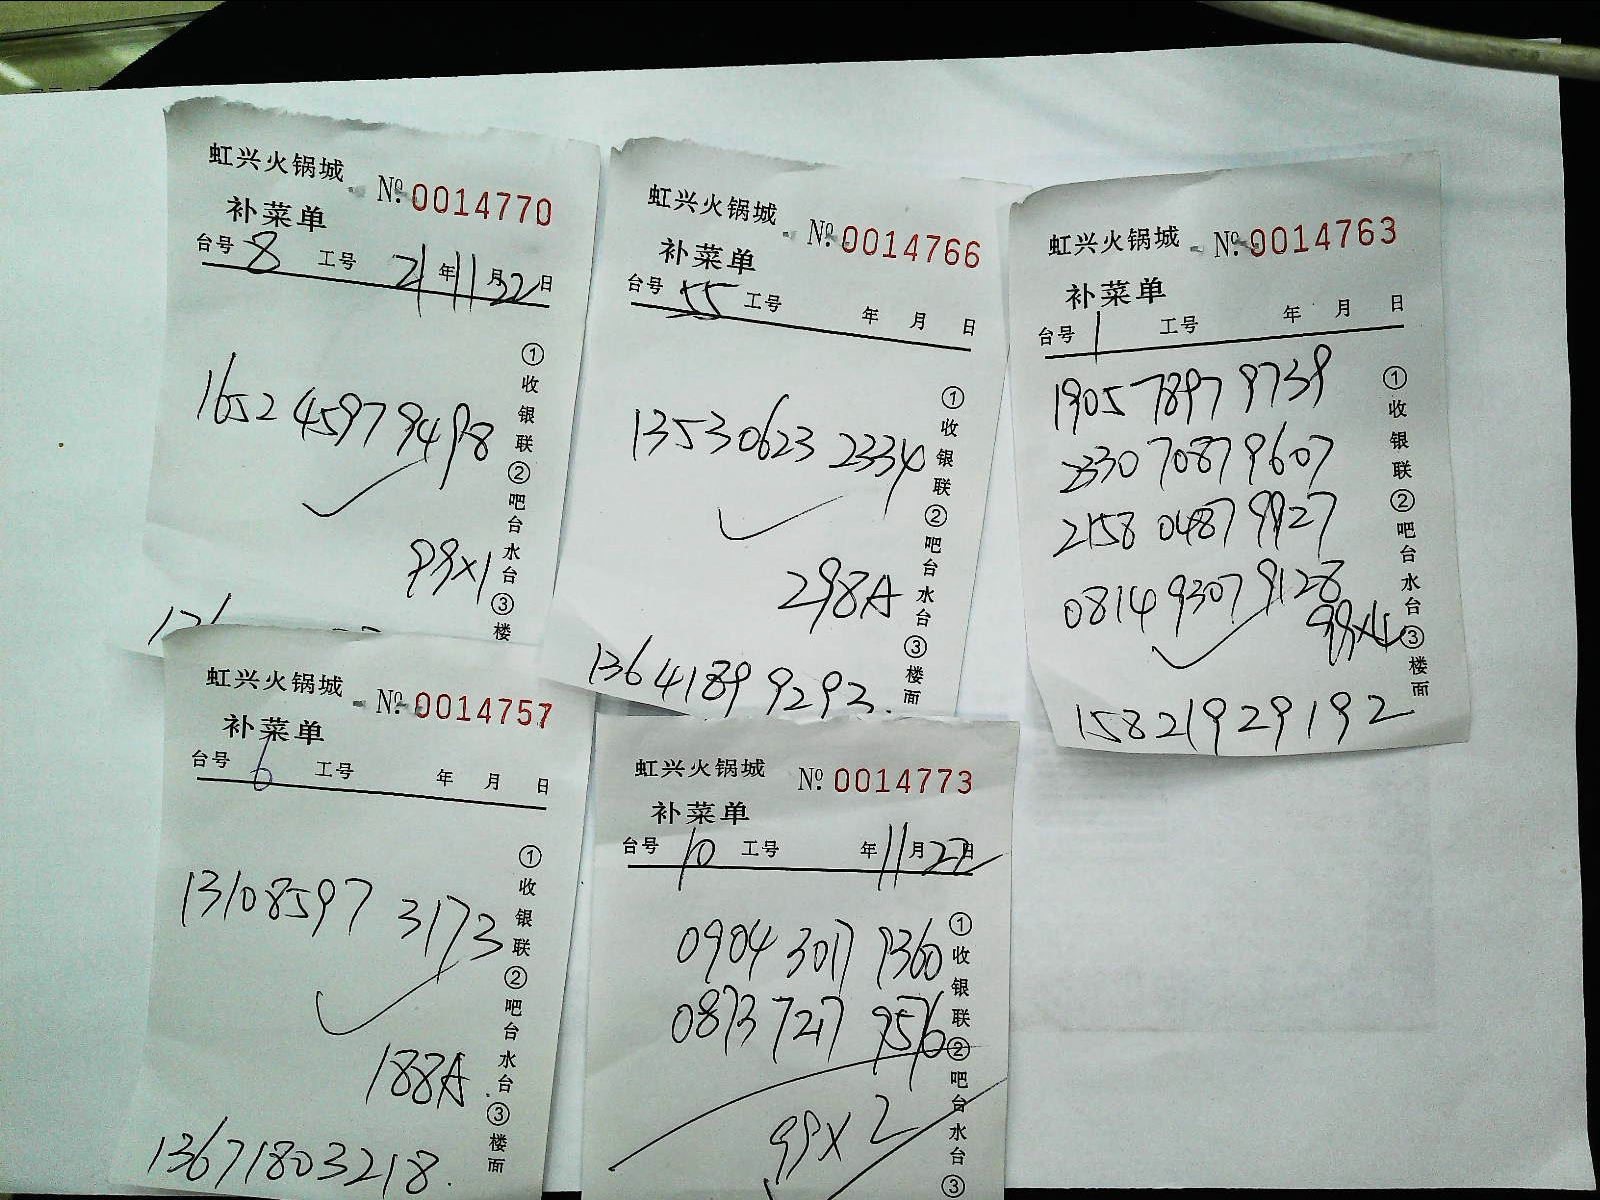 虹兴火锅城 No. 0014770
补菜单
台号 8 工号 21 年 11 月 22 日
1652 4597 9498
99x1
①收银联②吧台水台③楼
虹兴火锅城 No. 0014766
补菜单
台号 55 工号 年 月 日
1353 0623 2334
298A
13641899292.
①收银联②吧台水台③楼面
虹兴火锅城 No. 0014763
补菜单
台号 1 工号 年 月 日
1905 7897 9739
2330 7087 9607
2158 0487 9927
0814 9307 9128
99x4
15821929192
①收银联②吧台水台③楼面
虹兴火锅城 No. 0014757
补菜单
台号 6 工号 年 月 日
1310 8597 3173
188A
13671803218.
①收银联②吧台水台③楼面
虹兴火锅城 No. 0014773
补菜单
台号 10 工号 年 11 月 22 日
0904 3017 9360
0873 7217 9576
99x2
①收银联②吧台水台③